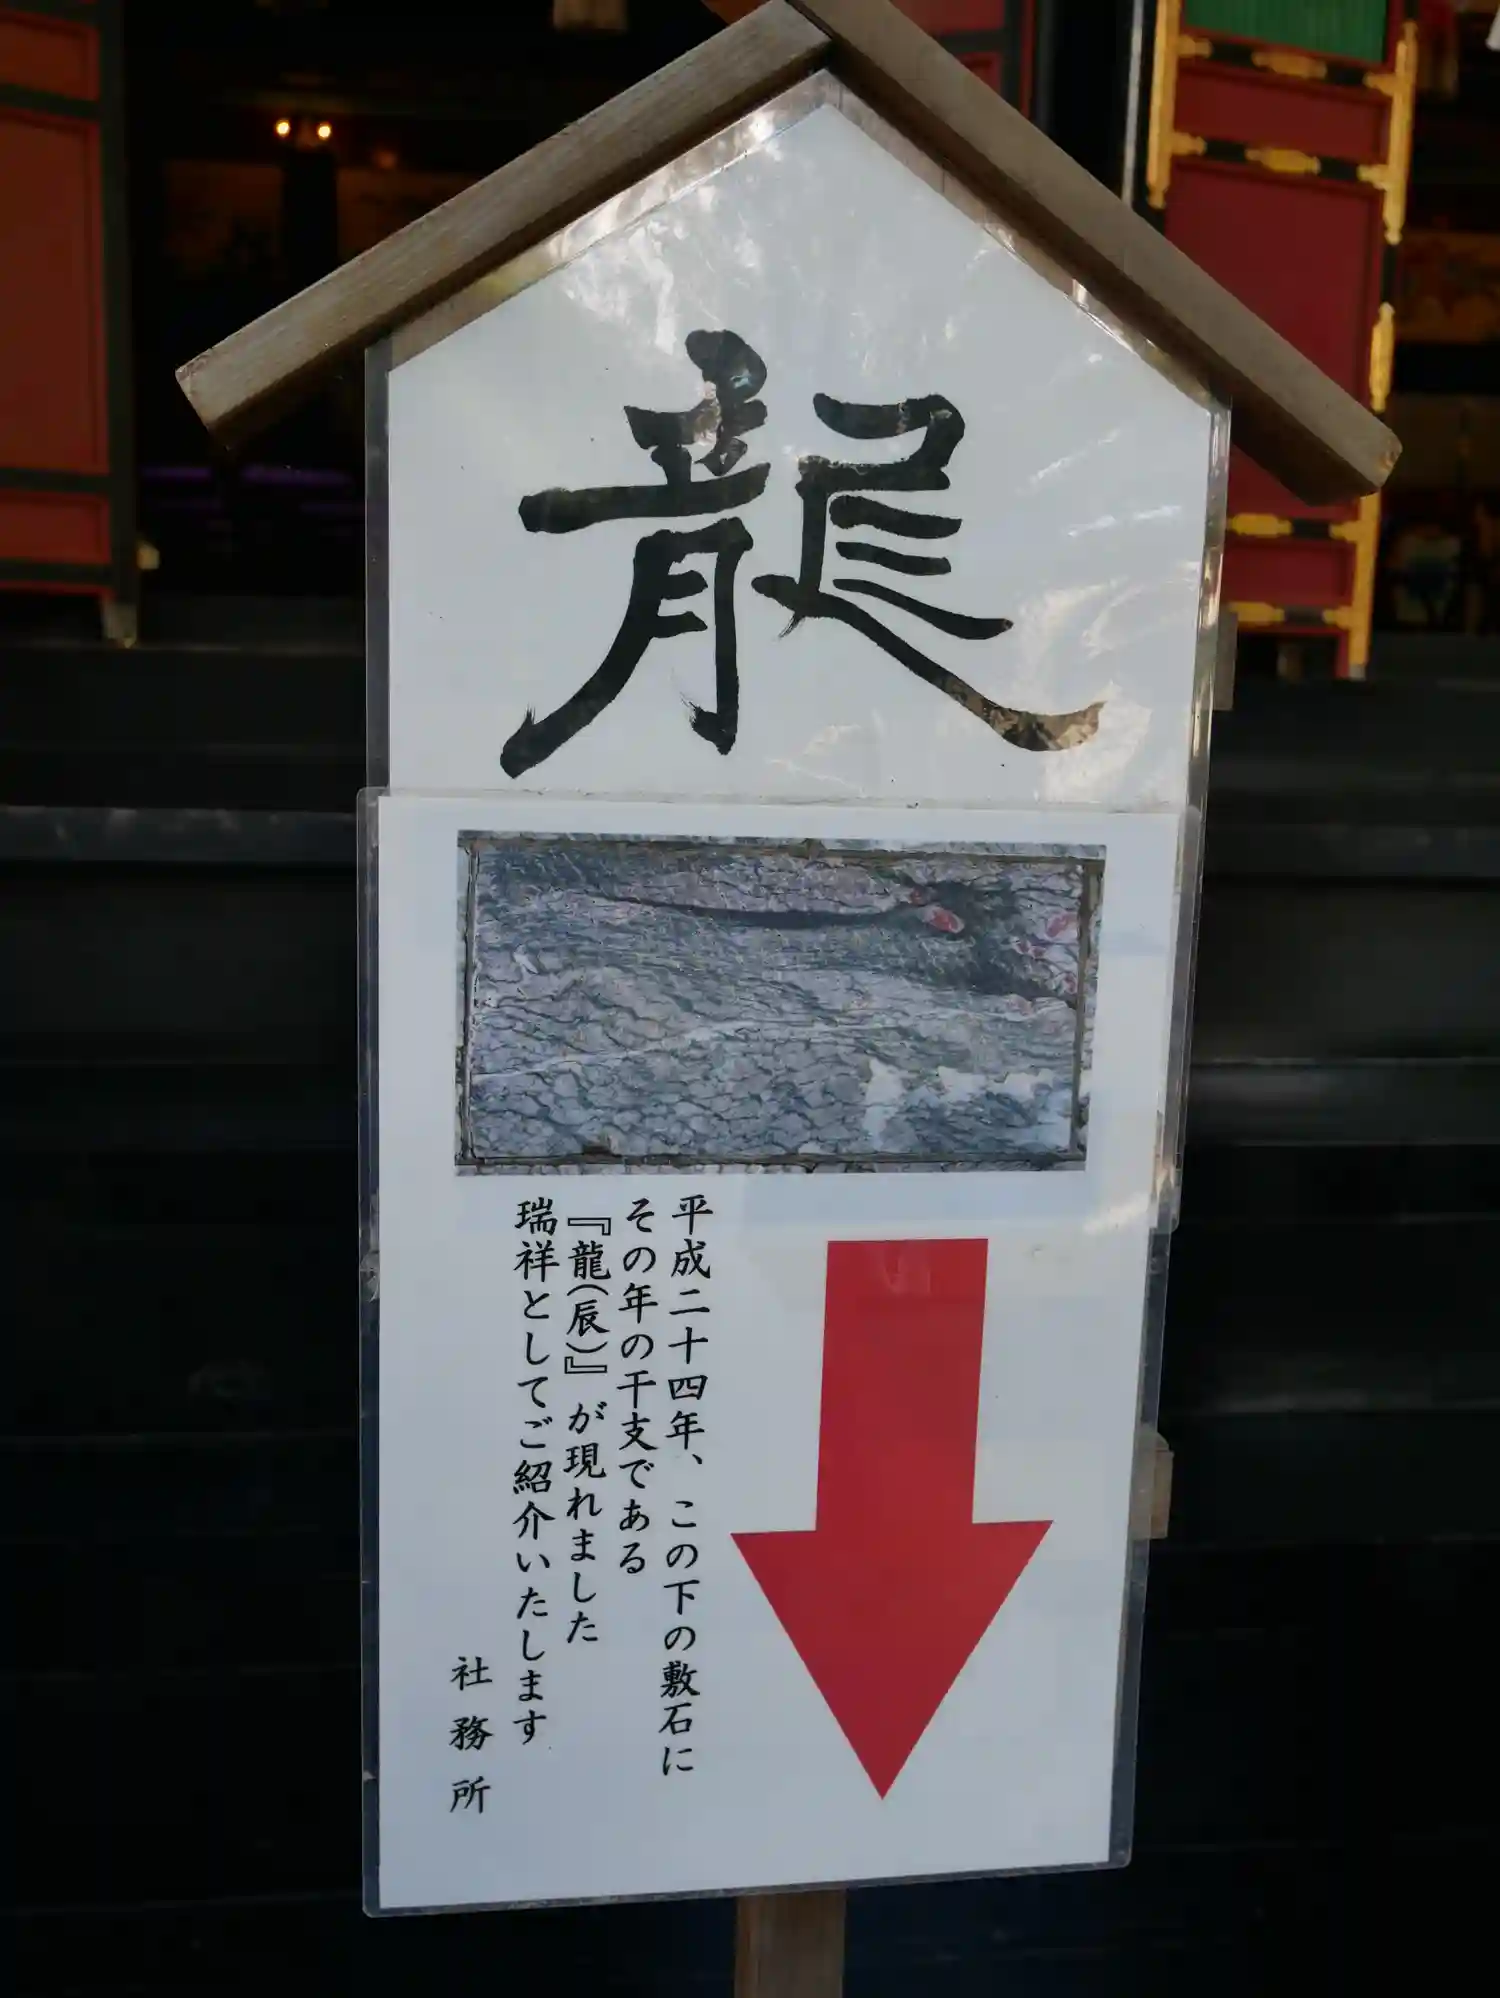 龍
平成二十四年、この下の敷石に
その年の干支である
『龍(辰)』が現れました
瑞祥としてご紹介いたします
社務所